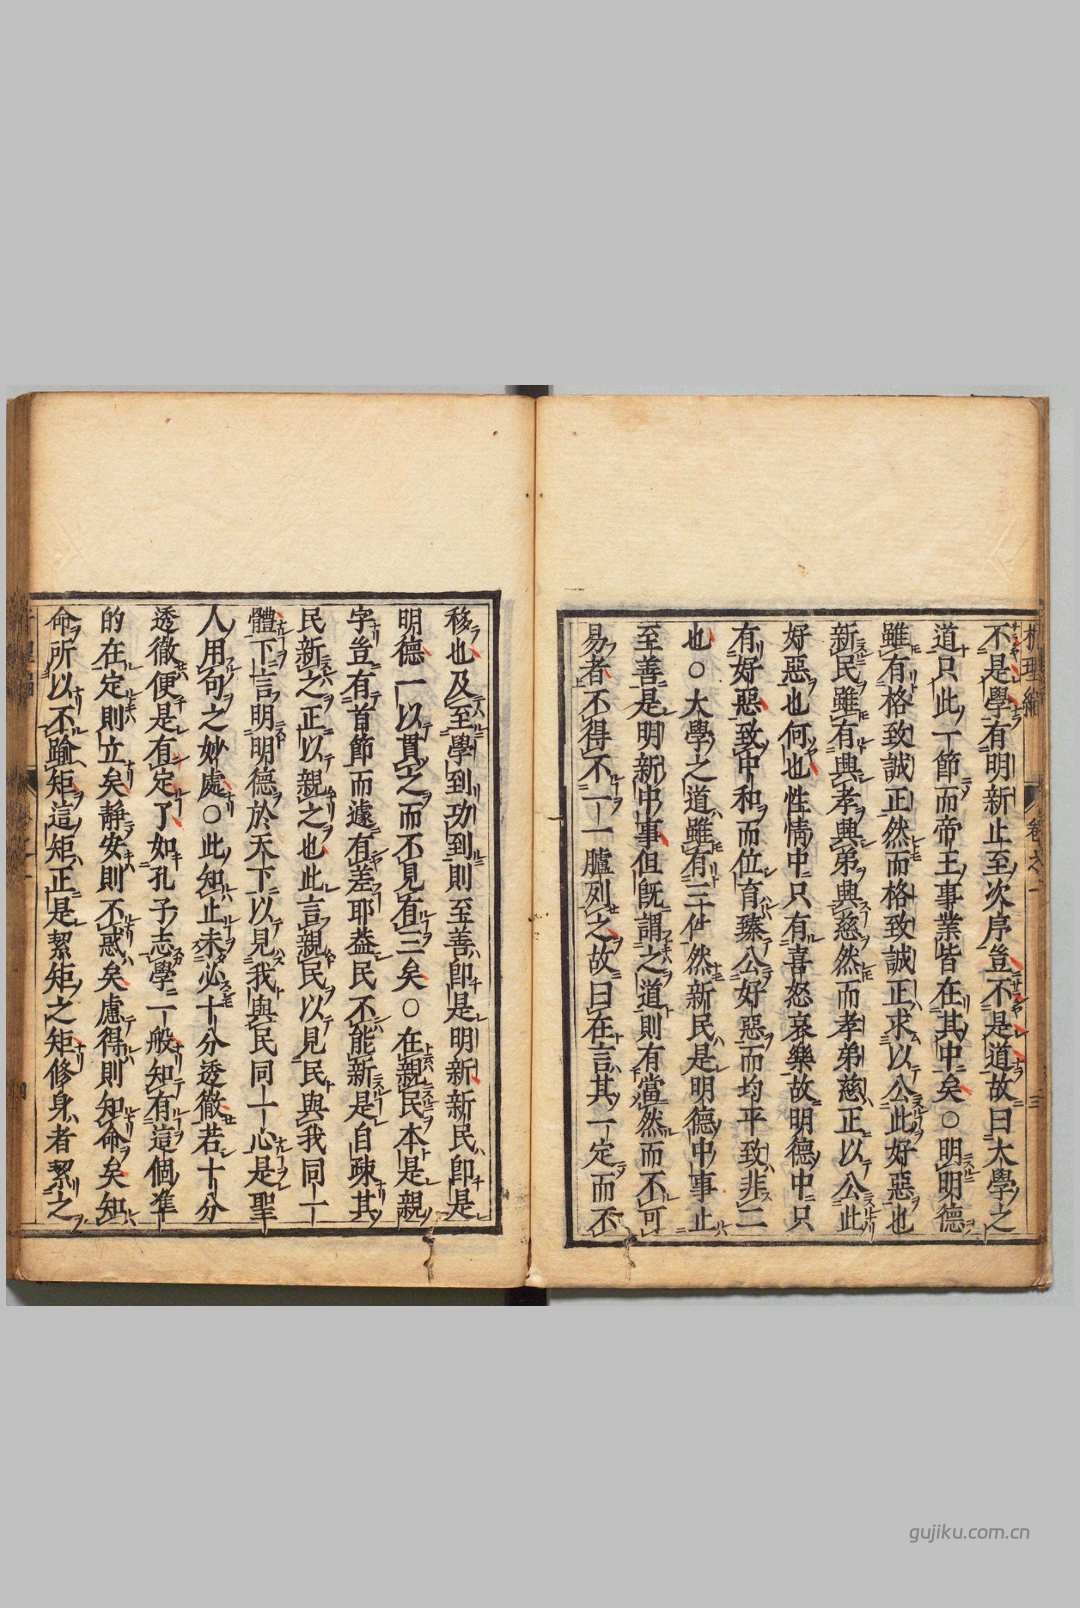 不是學有明新止至次序豈不是道故曰大學之
道只此一節而帝王事業皆在其中矣○明明德
雖有格致誠正然而格致誠正求以公此好惡也
新民雖有與孝與弟與慈然而孝弟慈正以公此
好惡也何也性情中只有喜怒哀樂故明德中只
有好惡致中和而位育臻公好惡而均平致非二
也○大學之道雖有三件然新民是明德中事止
至善是明新中事但既謂之道則有當然而不可
易者不得不一一臚列之故曰在言其一定而不
移也及至學到功到則至善即是明新新民即是
明德一以貫之而不見有三矣○在親民本是親
字豈有首節而遽有差耶益民不能新是自疎其
民新之正以親之也此言親民以見民與我同一
體下言明明德於天下以見我與民同一心是聖
人用句之妙處○此知止未必十分透徹若十分
透徹便是有定了如孔子志學一般知有這個準
的在定則立矣靜安則不惑矣慮得則知命矣知
命所以不踰矩這矩正是絜矩之矩修身者絜之
gujiku.com.cn